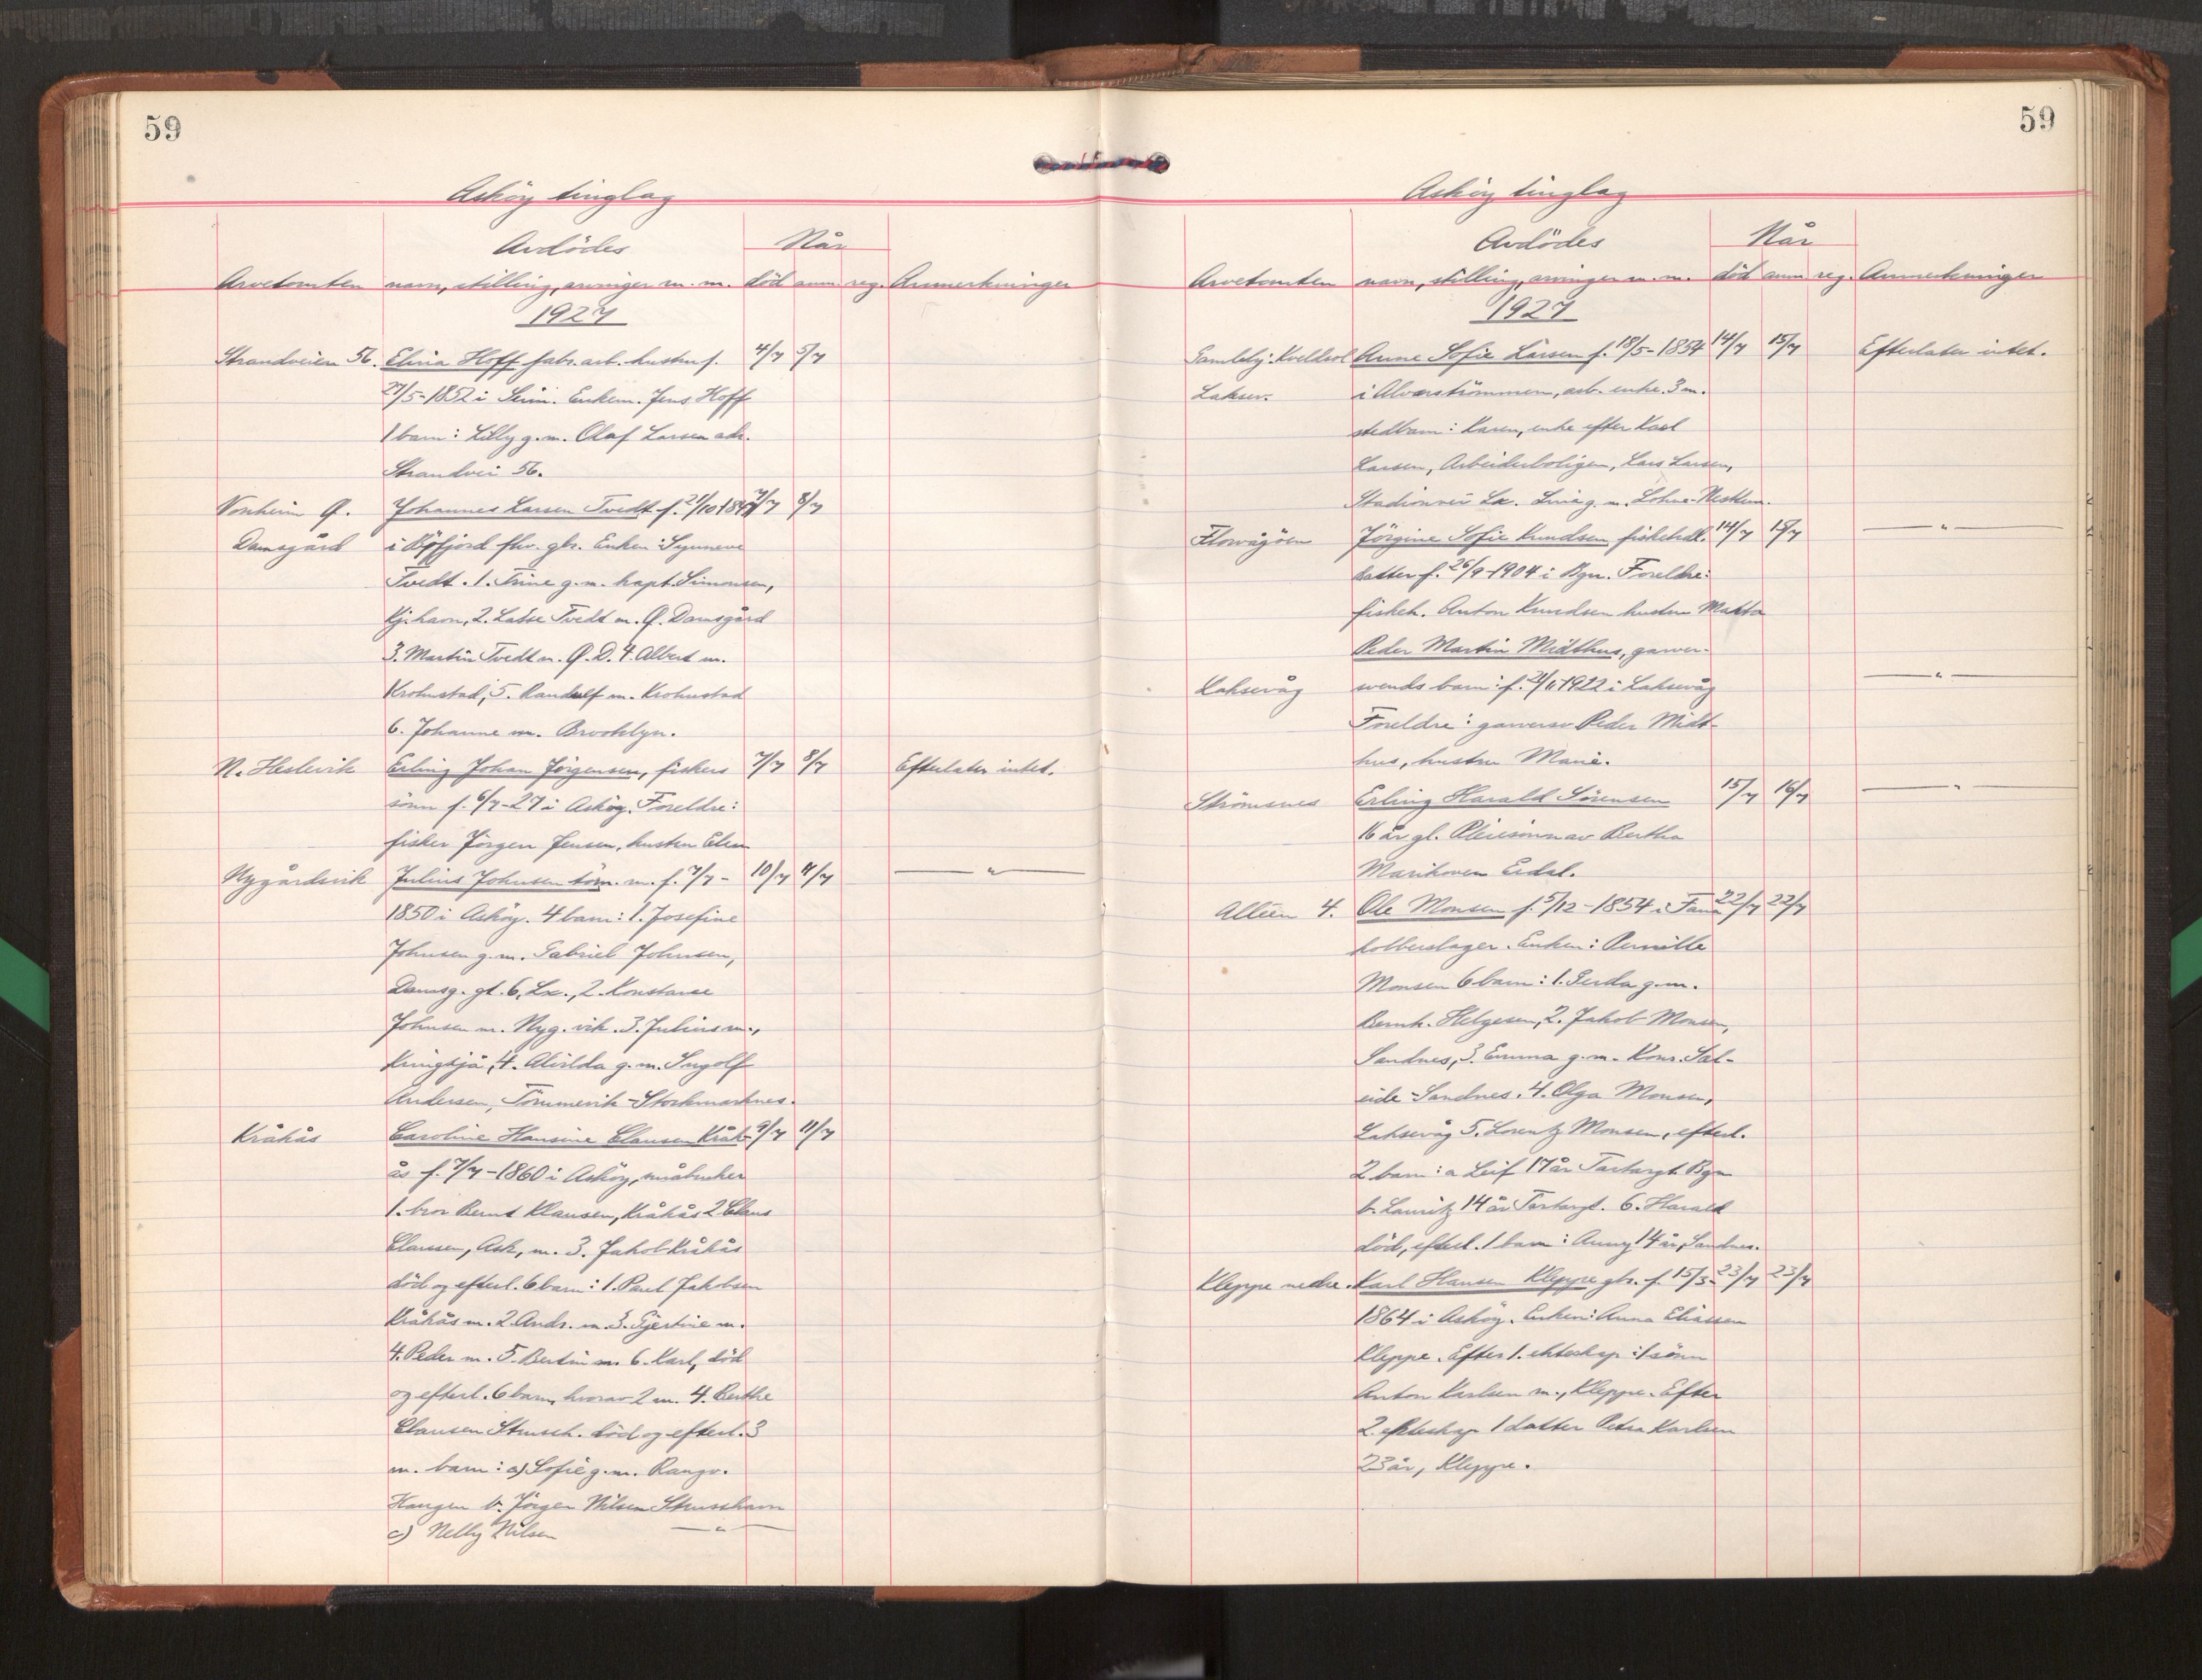 59
Askøy tinglag
Avdödes
Når
Arvetomten navn, stilling, arvinger m. m. död anm. reg. Anmerkninger
1927
Strandveien 56. Elina Hoff fabr. arb. hustru f. 4/7 5/7
27/5-1852 i Seim. Enkem. Jens Hoff
1 barn: Lilly g. m. Olaf Larsen adr.
Strandvei 56.
Vonheim Ø. Johannes Larsen Tvedt f. 21/10 1847 7/7 8/7
Damsgård i fhv. gbr. Enken: Synneve
Tvedt. 1. Trine g. m. kapt. Simonsen,
Kj.havn, 2. Lasse Tvedt m. Ø. Damsgård
3. Martin Tvedt m. Ø. D. 4. Albert m.
Krohnstad, 5. Randulf m. Krohnstad
6. Johanne m. Brooklyn.
N. Heslevik Erling Johan Jörgensen, fiskers 7/7 8/7 Efterlater intet.
sönn f. 6/7-27 i Askøy. Foreldre:
fisker Jörgen Jensen, hustru Elen
Nygårdsvik Julius Johnsen töm. m. f. 7/7- 10/7 11/7 — " —
1850 i Askøy. 4 barn: 1. Josefine
Johnsen g. m. Gabriel Johnsen,
Damsg. gt. 6, Lx., 2. Konstanse
Johnsen m. Nyg. vik. 3. Julius m.,
4. Alvilda g. m. Ingolf
Andersen, Tömmervik-Stockmarknes.
Kråkås Caroline Hansine Clausen Kråk- 9/7 11/7
ås f. 7/7-1860 i Askøy, småbruker
1. bror Bernt Klausen, Kråkås 2 Claus
Clausen, Ask, m. 3. Jakob Kråkås
död og efterl. 6 barn: 1. Paul Jakobsen
Kråkås m. 2. Andr. m. 3. Gjertine m.
4. Peder m. 5. Bertin m. 6. Karl, död
og efterl. 6 barn, hvorav 2 m. 4. Berthe
Clausen Strussh. död og efterl. 3
m. barn: a) Sofie g. m. Rangv.
Haugen b. Jörgen Nilsen Strusshavn
c) Nelly Nilsen — " —
59
Askøy tinglag
Avdödes
Når
Arvetomten navn, stilling, arvinger m. m. död anm. reg. Anmerkninger
1927
Gamleby: Kveldsol Anne Sofie Larsen f. 18/5-1854 14/7 15/7 Efterlater intet.
Laksev. i Alverströmmen, arb. enke. 3 m.
stedbarn: Karen, enke efter Karl
Larsen, Arbeiderboligen, Lars Larsen,
Stadionvei Lx. g. m.
Flovågöen Jörgine Sofie Knudsen fiskehdl. 14/7 15/7 — " —
datter f. 26/9-1904 i Bgn. Foreldre:
fiskeh. Anton Knudsen hustru Makta
Peder Martin Midthus, garver-
Laksevåg svends barn: f. 21/6 1922 i Laksevåg — " —
Foreldre: garversv Peder Midt-
hus, hustru Marie.
Strömsnes Erling Harald Sörensen 15/7 16/7 — " —
16 år gl. Pleiesönn av Bertha
Marihoven Eidal.
Alléen 4. Ole Monsen f. 5/12-1854 i Fana 22/7 22/7
kobberslager. Enken: Pernille
Monsen 6 barn: 1. Gerda g. m.
Bernh. Helgesen, 2. Jakob Monsen,
Sandnes, 3. Emma g. m. Konr. Sal-
eide-Sandnes. 4. Olga Monsen,
Laksevåg 5. Lorentz Monsen, efterl.
2 barn: a Leif 17 år Tartargt. Bgn
b. Lauritz 14 år Tartargt. 6. Harald
död, efterl. 1 barn: Anny 14 år, Sandnes.
Kleppe nedre. Karl Hansen Kleppe gbr. f. 15/3- 23/7 23/7
1864 i Askøy. Enken: Anna Eliassen
Kleppe. Efter 1. ekteskap: 1 sönn
Anton Karlsen m., Kleppe. Efter
2. ekteskap 1 datter Petra Karlsen
23 år, Kleppe.